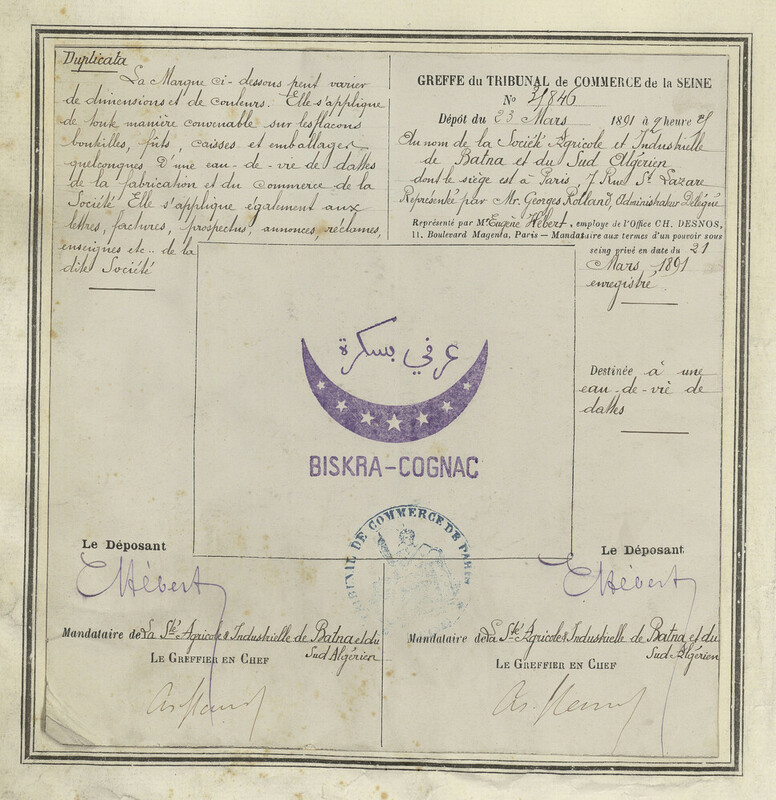 Duplicata
La Marque ci-dessous peut varier
de dimensions et de couleurs. Elle s'applique
de toute manière convenable sur les flacons
bouteilles, fûts, caisses et emballages
quelconques d'une eau-de-vie de dattes
de la fabrication et du commerce de la
Société. Elle s'applique également aux
lettres, factures, prospectus, annonces, réclames,
enseignes etc... de la
dite Société
GREFFE du TRIBUNAL de COMMERCE de la SEINE
No 31846
Dépôt du 23 Mars 1891 à 2 heure
Au nom de la Société Agricole et Industrielle
de Batna et du Sud Algérien
dont le siège est à Paris 7 Rue St Lazare
Représentée par Mr. Georges Rolland, Administrateur Délégué
Représenté par Mr Eugène Hébert, employé de l'Office CH. DESNOS,
11, Boulevard Magenta, Paris — Mandataire aux termes d'un pouvoir sous
seing privé en date du 21
Mars 1891
enregistré
Destinée à une
eau-de-vie de
dattes
عرفي بسكرة
BISKRA-COGNAC
TRIBUNAL DE COMMERCE DE PARIS
Le Déposant
EHébert
Mandataire de La Sté Agricole & Industrielle de Batna et du
Sud Algérien
LE GREFFIER EN CHEF
Le Déposant
EHébert
Mandataire de La Sté Agricole & Industrielle de Batna et du
Sud-Algérien
LE GREFFIER EN CHEF